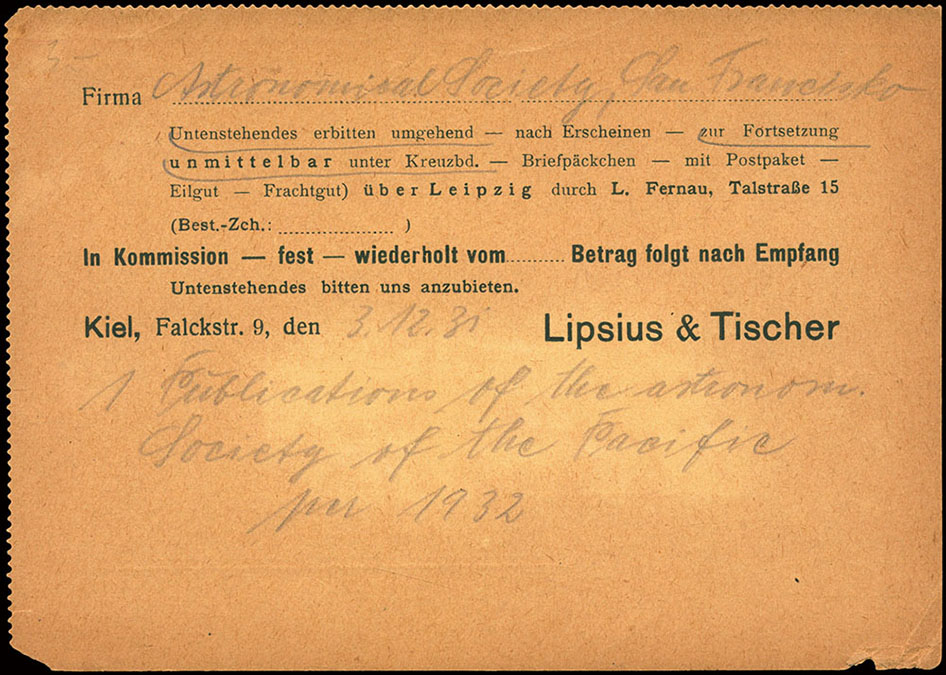 Firma Astronomical Society, San Francisko
Untenstehendes erbitten umgehend — nach Erscheinen — zur Fortsetzung
unmittelbar unter Kreuzbd. — Briefpäckchen — mit Postpaket —
Eilgut — Frachtgut) über Leipzig durch L. Fernau, Talstraße 15
(Best.-Zch.: .................... )
In Kommission — fest — wiederholt vom.......... Betrag folgt nach Empfang
Untenstehendes bitten uns anzubieten.
Kiel, Falckstr. 9, den 3.12.31 Lipsius & Tischer
1 Publications of the astronom.
Society of the Pacific
per 1932